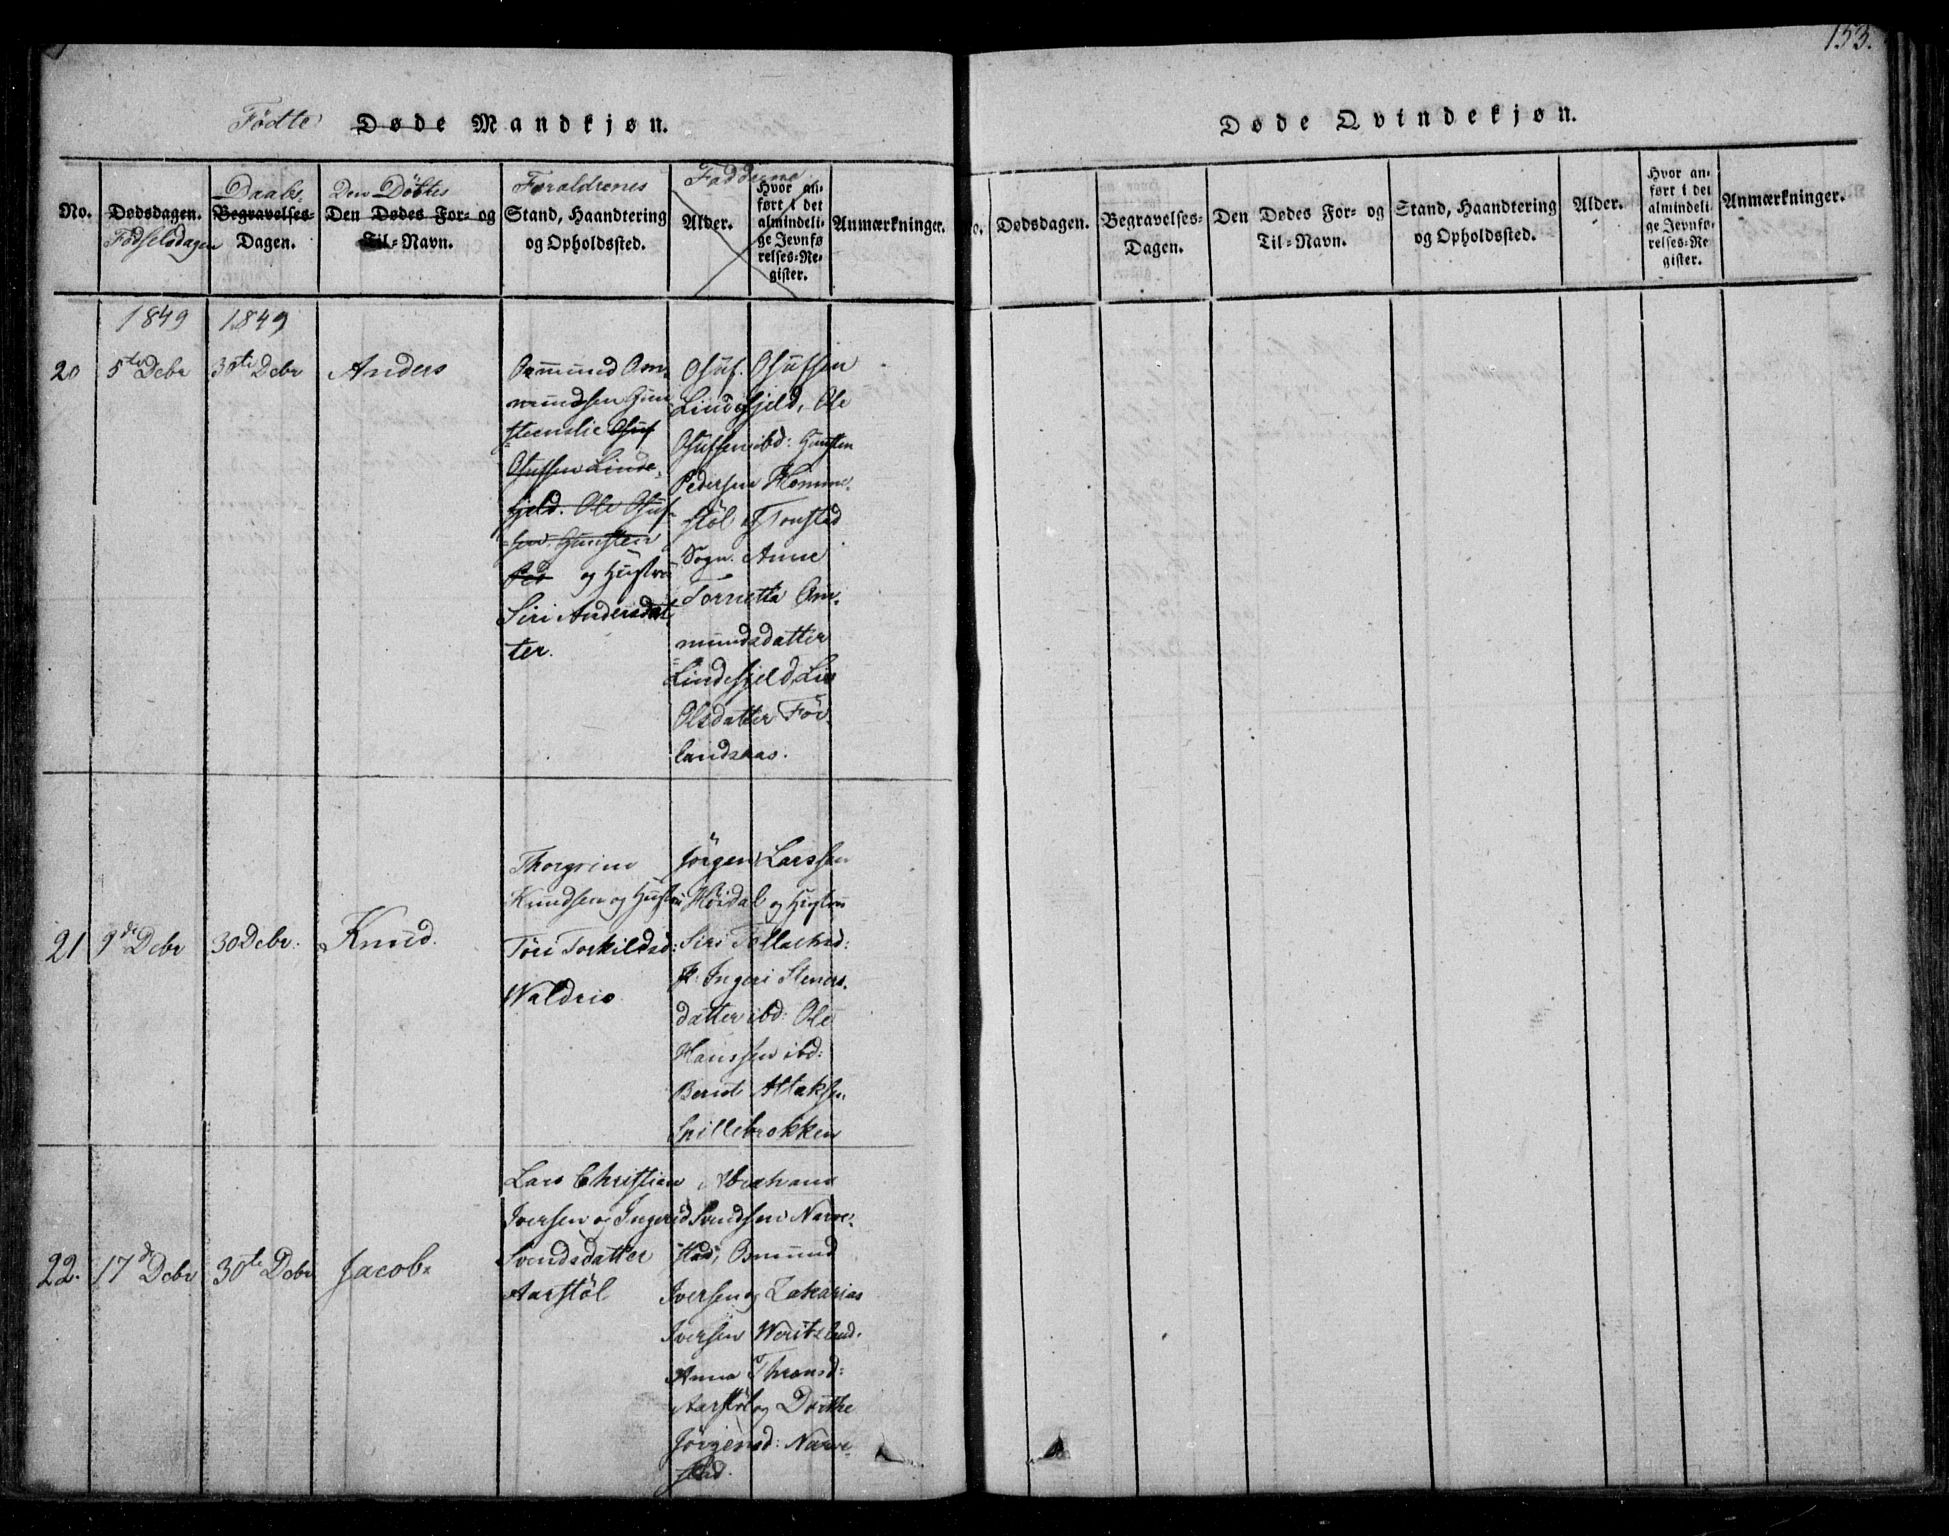 153.
Fødte Døde Mandkjøn.
No.
Dødsdagen.
Fødselsdagen
Daabs-
Begravelses-
Dagen.
Den Döbtes
Den Dødes For- og
Til-Navn.
Forældrenes
Stand, Haandtering
og Opholdssted.
Fadderne
Alder.
Hvor an-
ført i det
almindeli-
ge Jevnfø
relses-Re-
gister.
Anmærkninger.
1849 1849
20 5te Debr 30te Debr Anders
Ommund Om-
mundsen Gun
steenslie Oluf
Olufsen Linde-
fjeld. Ole Oluf-
sen. Gunsten
Ped og Hustru
Siri Andersdat
ter.
Oluf. Olufsen
Lindefjeld, Ole
Olufsen ibd: Gunsten
Pedersen Homme-
stöl af Tonstad
Sogn. Anne
Tonnetta Om-
mundsdatter
Lindefjeld, Liv
Olsdatter För-
landsaas.
21 9de Debr 30 Debr. Knud.
Thorgrim
Knudsen og Hustru
Töri Torkildsd:
Waldrio
Jörgen Larssen
Höidal og Hustru
Siri Tollachsd:
P: Ingeri Steners-
datter ibd: Ole
Hanssen ibd:
Berit Atlaksen
Spillebrokken
22. 17de Debr 30te Debr Jacob
Lars Christian
Iversen og Ingerid
Svendsdatter
Aarstöl
Abraham
Svendsen Narve-
stad, Osmund
Iversen og Zakarias
Iversen Weritsland.
Anna Thronsd:
Aarstöl og Dorthe
Jörgensd: Narve-
stad.
Døde Qvindekjøn.
No.
Dødsdagen.
Begravelses-
Dagen.
Den Dødes For- og
Til-Navn.
Stand, Haandtering
og Opholdssted.
Alder.
Hvor an-
ført i det
almindeli-
ge Jevnfø-
relses-Re
gister.
Anmærkninger.